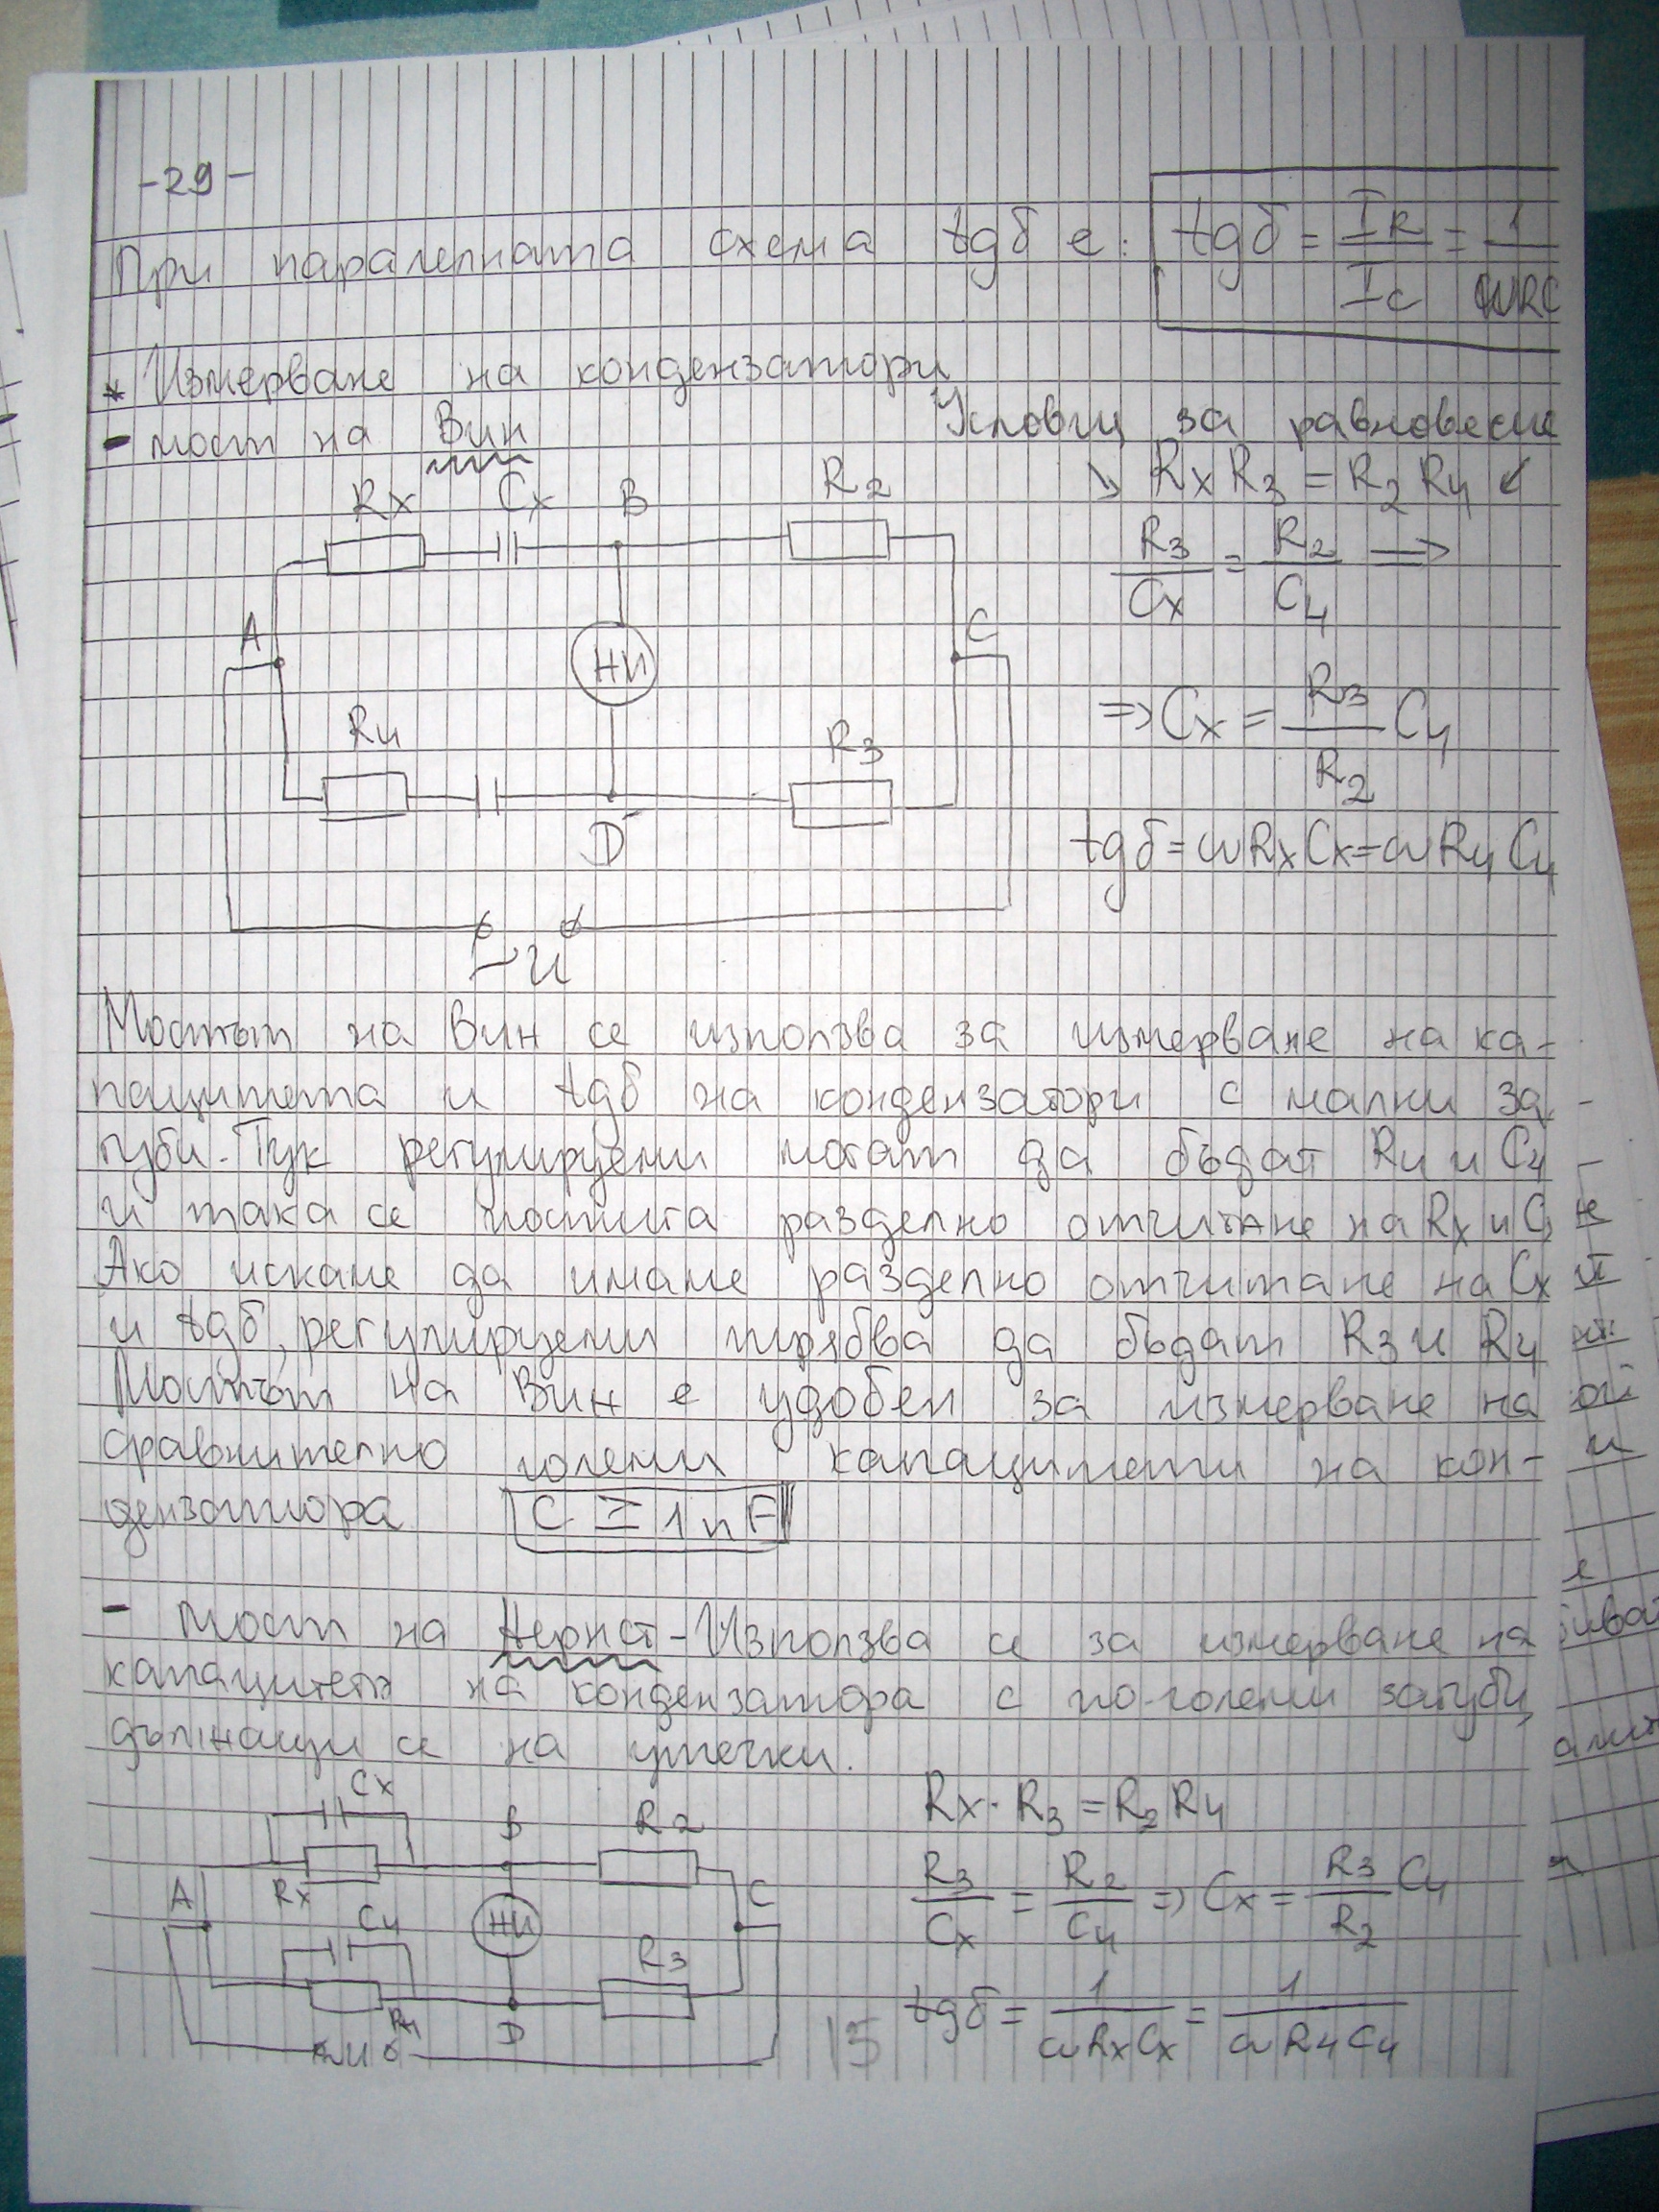 -29-
При паралелната схема tgδ е: tgδ = IR/IC = 1/ωRC
* Измерване на кондензатори
- мост на Вин
Условия за равновесие
RxR3 = R2R4
Rx Cx B R2
R3/Cx = R2/C4 =>
A НИ C
=> Cx = R3/R2 C4
R4 R3
D
tgδ = ωRxCx = ωR4C4
~U
Мостът на Вин се използва за измерване на ка-
пацитета и tgδ на кондензатори с малки за
губи. Тук регулируеми могат да бъдат R4 и C4
и така се постига разделно отчитане на Rx и C
Ако искаме да имаме разделно отчитане на Cx
и tgδ, регулируеми трябва да бъдат R3 и R4
Мостът на Вин е удобен за измерване на
сравнително големи капацитети на кон-
дензатора C ≥ 1nF
- мост на Нернст - Използва се за измерване на
капацитета на кондензатора с по-големи загуби,
дължащи се на утечки.
Cx
Rx · R3 = R2R4
B R2
Rx
A C4 НИ C
R3/Cx = R2/C4 => Cx = R3/R2 C4
R3
R4 D
~U
15
tgδ = 1/ωRxCx = 1/ωR4C4